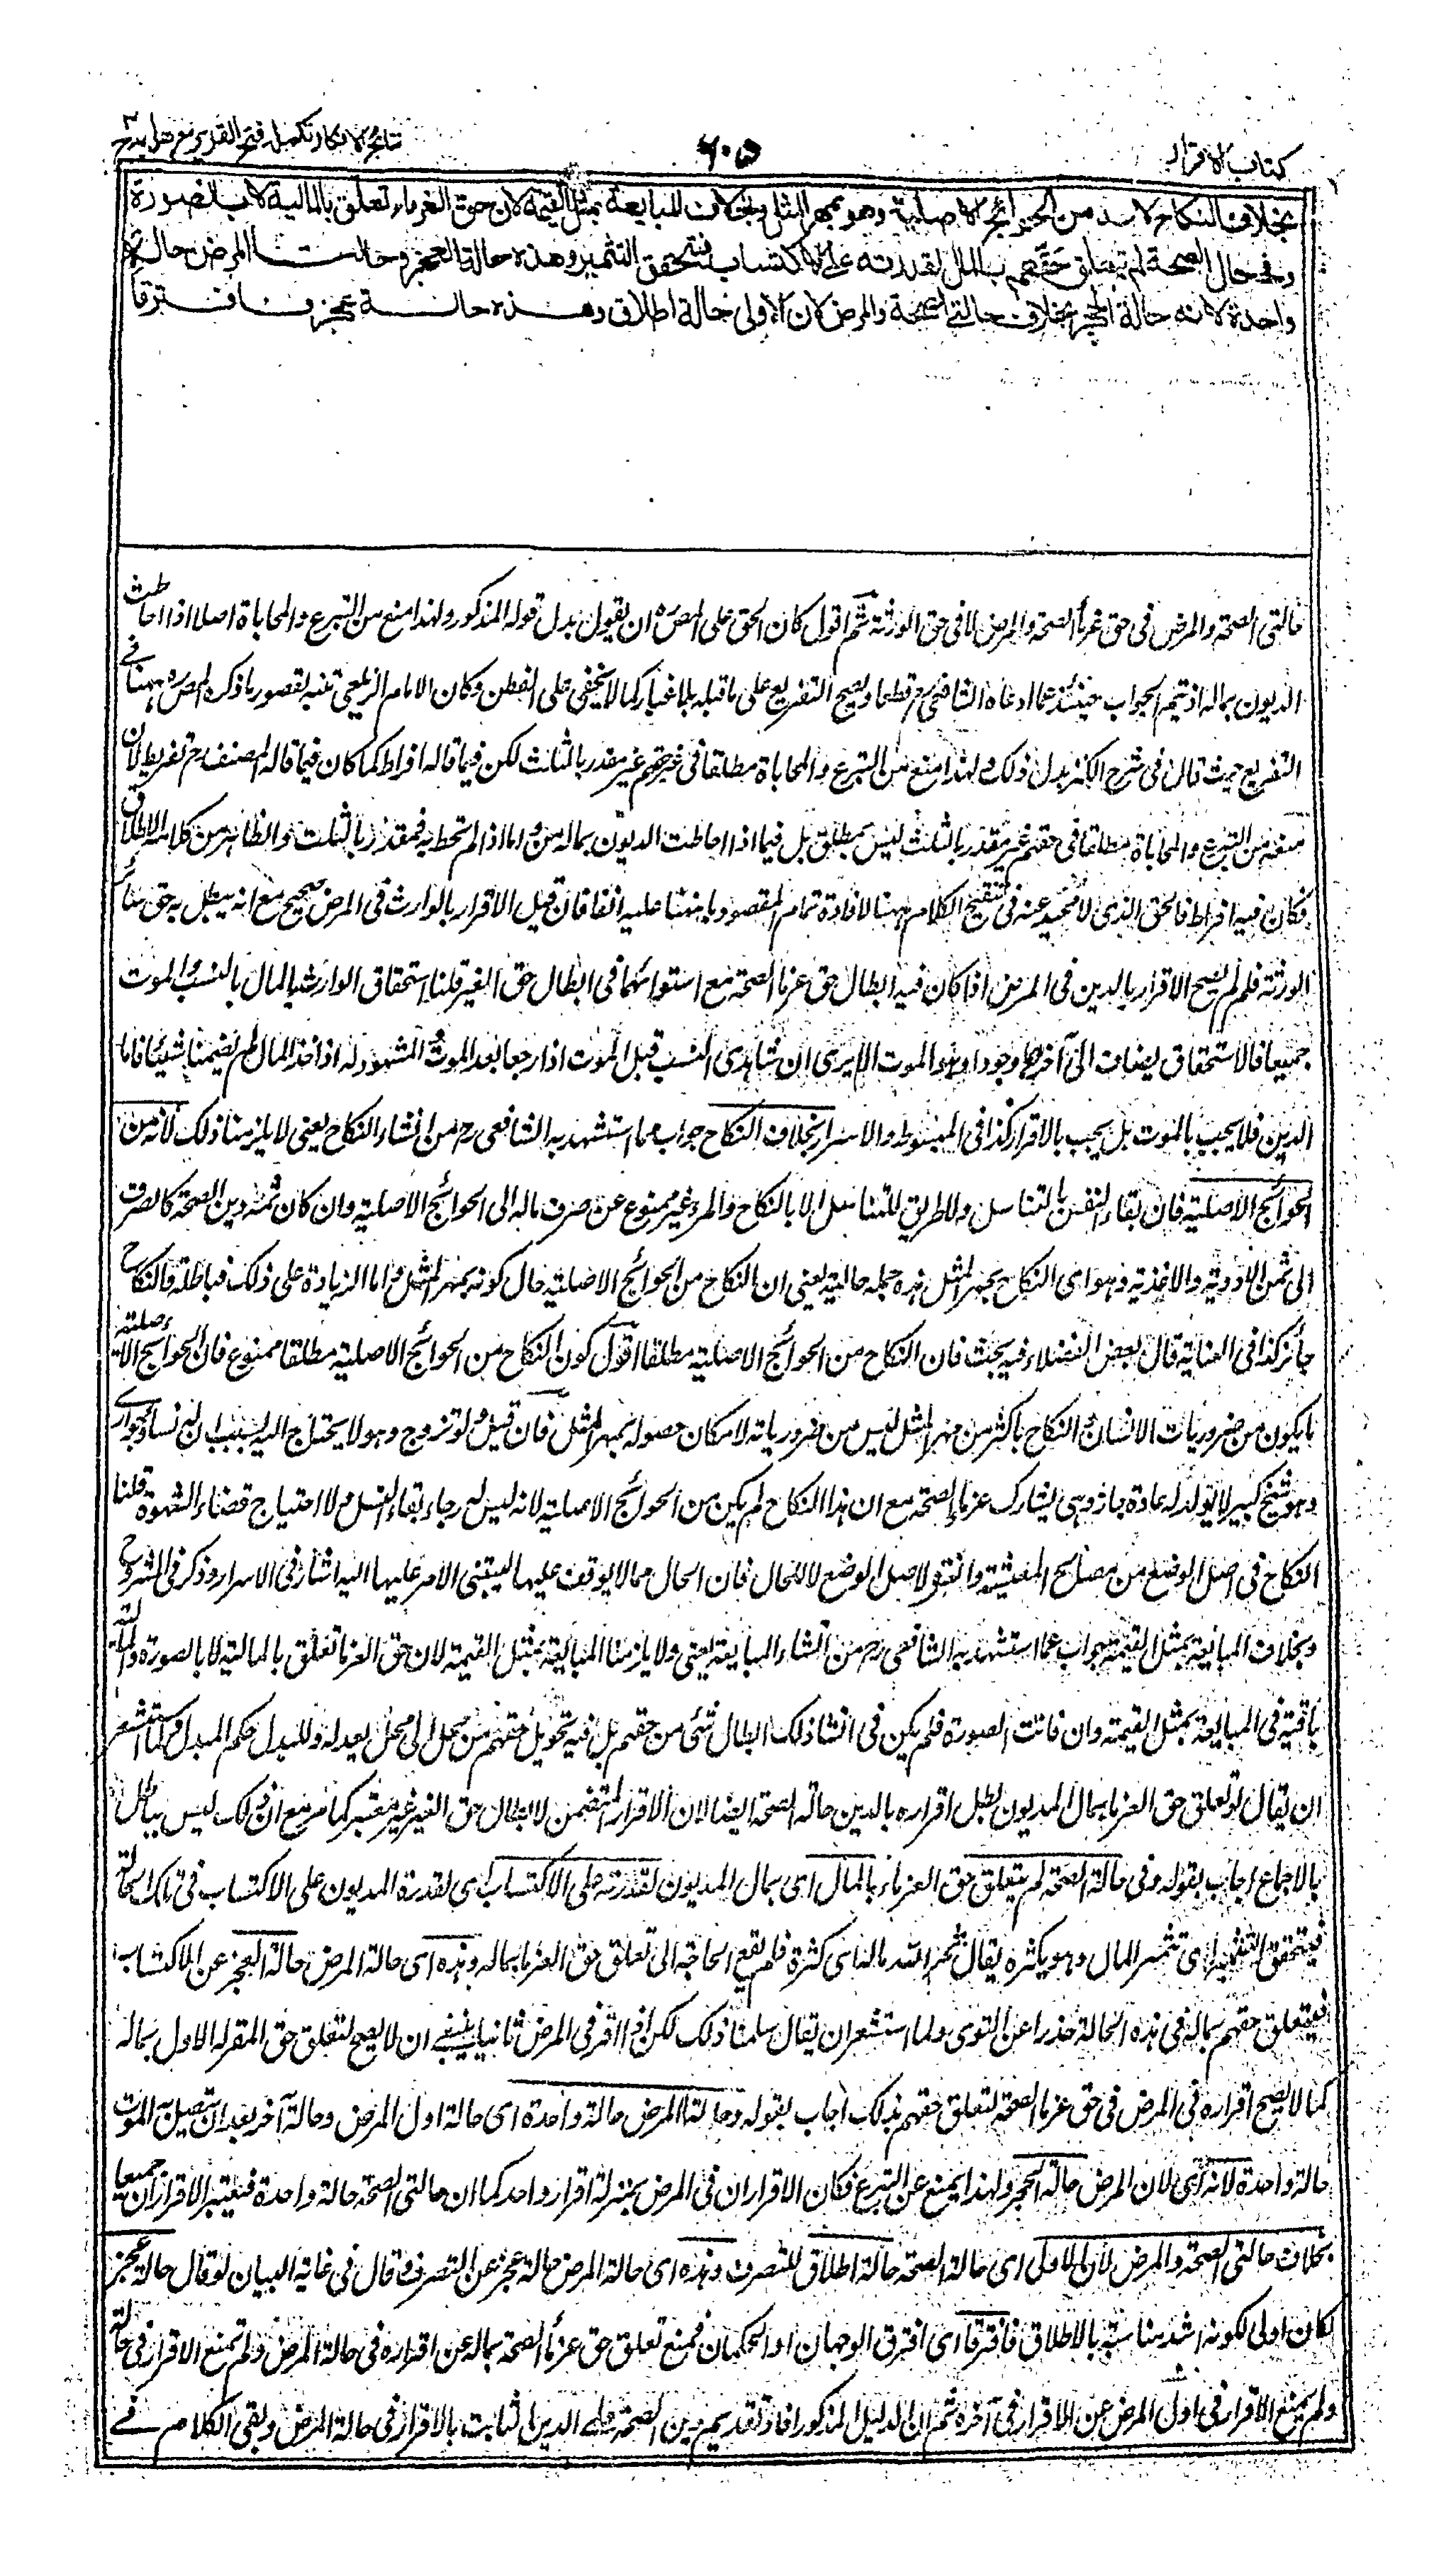 كتاب الاقرار
٦٠٥
نتائج الافكار تكملہ فتح القدير مع هدايہ ج ٣
بخلاف النكاح لانه من الحوائج الاصلية وهو بمهر المثل وبخلاف المبايعة بمثل القيمة لان حق الغرماء تعلق بالمالية لا بالصورة
وفى حال الصحة لم يتعلق حقهم بالمال لقدرته على الاكتساب فيتحقق التثمير وهذه حالة العجز وحالتا المرض حالة
واحدة لانه حالة الحجر بخلاف حالتى الصحة والمرض لان الاولى حالة اطلاق وهذه حالة عجز فافترقا
حالتى الصحة والمرض فى حق غرماء الصحة والمرض لا فى حق الورثة ثم اقول كان الحق على المصره ان يقول بدل قوله المذكور ولهذا منع من التبرع والمحاباة اصلا اذا احاطت
الديون بماله اذ تيم الجواب حينئذ عما ادعاه الشافعى رح قطعا ويصح التفريع على ما قبله بلا غبار كما لا يخفى على الفطن وكان الامام الزيلعى تنبه لقصور ما ذكره المصره ههنا فے
التفريع حيث قال فى شرح الكنز بدل ذلك ولهذا منع من التبرع والمحاباة مطلقا فى حقهم غير مقدر بالثلث لكن فيما قاله افراط كما كان فيما قاله المصنف رح تفريط لان
منعه من التبرع والمحاباة مطلقا فى حقهم غير مقدر بالثلث ليس بمطلق بل فيما اذا احاطت الديون بماله واما اذا لم تحط به فمقدر بالثلث والظاهر من كلامه الاطلاق
فكان فيه افراط فالحق الذى لا محيد عنه فى تنقيح الكلام ههنا لافادة تمام المقصود ما نبهنا عليه انفا فان قيل الاقرار بالوارث فى المرض صحيح مع انه يبطل به حق سائر
الورثة فلم لم يصح الاقرار بالدين فى المرض اذا كان فيه ابطال حق غرماء الصحة مع استوائهما فى ابطال حق الغير قلنا استحقاق الوارث المال بالنسب والموت
جميعا فالاستحقاق يضاف الى آخرهما وجودا وهو الموت الا يرى ان شاهدى النسب قبل الموت اذا رجعا بعد الموت والمشهود له اذ اخذ المال لم يضمنا شيئا فاما
الدين فلا يجب بالموت بل يجب بالاقرار كذا فى المبسوط والاسرار بخلاف النكاح جواب عما استشهد به الشافعى رح من انشاء النكاح يعنى لا يلزمنا ذلك لانه من
الحوائج الاصلية فان بقاء النفس بالتناسل ولا طريق للتناسل الا بالنكاح والمرء غير ممنوع عن صرف ماله الى الحوائج الاصلية وان كان ثمه دين الصحة كالصرف
الى ثمن الادوية والاغذية وهو اى النكاح بمهر المثل هذه جملة حالية يعنى ان النكاح من الحوائج الاصلية حال كونه بمهر المثل واما الزيادة على ذلك فباطلة والنكاح
جائز كذا فى العناية قال بعض الفضلاء فيه بحث فان النكاح من الحوائج الاصلية مطلقا اقول كون النكاح من الحوائج الاصلية مطلقا ممنوع فان الحوائج الاصلية
ما يكون من ضروريات الانسان والنكاح باكثر من مهر المثل ليس من ضرورياته لامكان حصوله بمهر المثل فان قيل لو تزوج وهو لا يحتاج اليه بسبب ان له نساء وجوارى
وهو شيخ كبير لا يولد له عادة جاز وهى يشارك غرماء الصحة مع ان هذا النكاح لم يكن من الحوائج الاصلية لانه ليس له رجاء بقاء النسل ولا احتياج قضاء الشهوة قلنا
النكاح فى اصل الوضع من مصالح المعيشة والعبرة لاصل الوضع لا للحال فان الحال مما لا يوقف عليها ليبتنى الامر عليها اليه اشار فى الاسرار وذكر فى الشروح
وبخلاف المبايعة بمثل القيمة جواب عما استشهد به الشافعى رح من انشاء المبايعة يعنى ولا يلزمنا المبايعة بمثل القيمة لان حق الغرماء تعلق بالمالية لا بالصورة والمالية
باقية فى المبايعة بمثل القيمة وان فاتت الصورة فلم يكن فى انشاء ذلك ابطال شئ من حقهم بل فيه تحويل حقهم من محل الى محل يعدله وللبدل حكم المبدل ولما استشعر
ان يقال لو تعلق حق الغرماء بمال المديون لبطل اقراره بالدين حالة الصحة ايضا لان الاقرار المتضمن لابطال حق الغير غير معتبر كما مر مع ان ذلك ليس بباطل
بالاجماع اجاب بقوله وفى حالة الصحة لم يتعلق حق الغرماء بالمال اى بمال المديون لقدرته على الاكتساب اى لقدرة المديون على الاكتساب فى تلك الحالة
فيتحقق التثمير اى تثمير المال وهو تكثيره يقال ثمر الله ماله اى كثره فلم يقع الحاجة الى تعلق حق الغرماء بماله وهذه اى حالة المرض حالة العجز عن الاكتساب
فيتعلق حقهم بماله فى هذه الحالة حذرا عن التوى ولما استشعر ان يقال سلمنا ذلك لكن اذا اقر فى المرض ثانيا ينبغے ان لا يصح لتعلق حق المقر له الاول بماله
كما لا يصح اقراره فى المرض فى حق غرماء الصحة لتعلق حقهم بذلك اجاب بقوله وحالتا المرض حالة واحدة اى حالة اول المرض وحالة آخره بعد ان يتصل به الموت
حالة واحدة لانه اى لان المرض حالة الحجر ولهذا يمنع عن التبرع فكان الاقراران فى المرض بمنزلة اقرار واحد كما ان حالتى الصحة حالة واحدة فيعتبر الاقراران جميعا
بخلاف حالتى الصحة والمرض لان الاولى اى حالة الصحة حالة اطلاق للتصرف وهذه اى حالة المرض حالة عجز عن التصرف وقال فى غاية البيان لو قال حالة حجز
لكان اولى لكونه اشد مناسبة بالاطلاق فافترقا اى افترق الوجهان او الحكمان فمنع تعلق حق غرماء الصحة بماله عن اقراره فى حالة المرض ولم تمنع الاقرار فى حالة
ولم يمنع الاقرار فى اول المرض عن الاقرار فى آخره ثم ان الدليل المذكور افاد تقديم دين الصحة على الدين الثابت بالاقرار فى حالة المرض وبقى الكلام فے